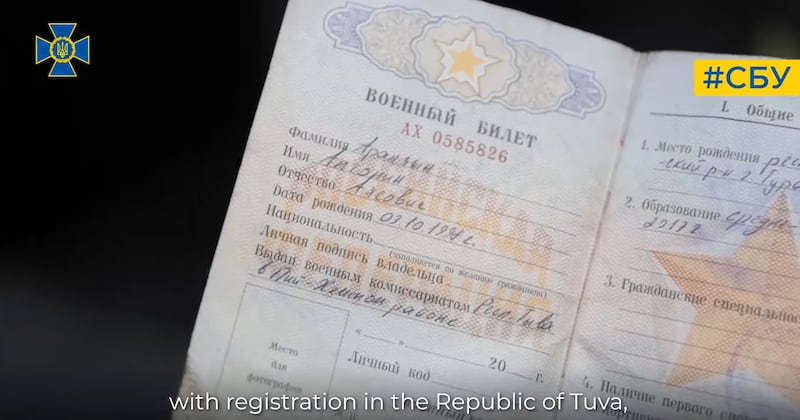 #СБУ
ВОЕННЫЙ БИЛЕТ
АХ 0585826
Фамилия
Имя
Отчество
Дата рождения 03.10.
Национальность
(заполняется по желанию гражданина)
Личная подпись владельца
Выдан военным комиссариатом Респ. Тыва
в Пий-Хемском районе
« » 20 г.
Личный код
Место
для
фотографии
1. Общие
1. Место рождения рес
-ский р-н г. Тура
2. Образование средне-
2017г
3. Гражданские специальнос
4. Наличие первого
with registration in the Republic of Tuva,